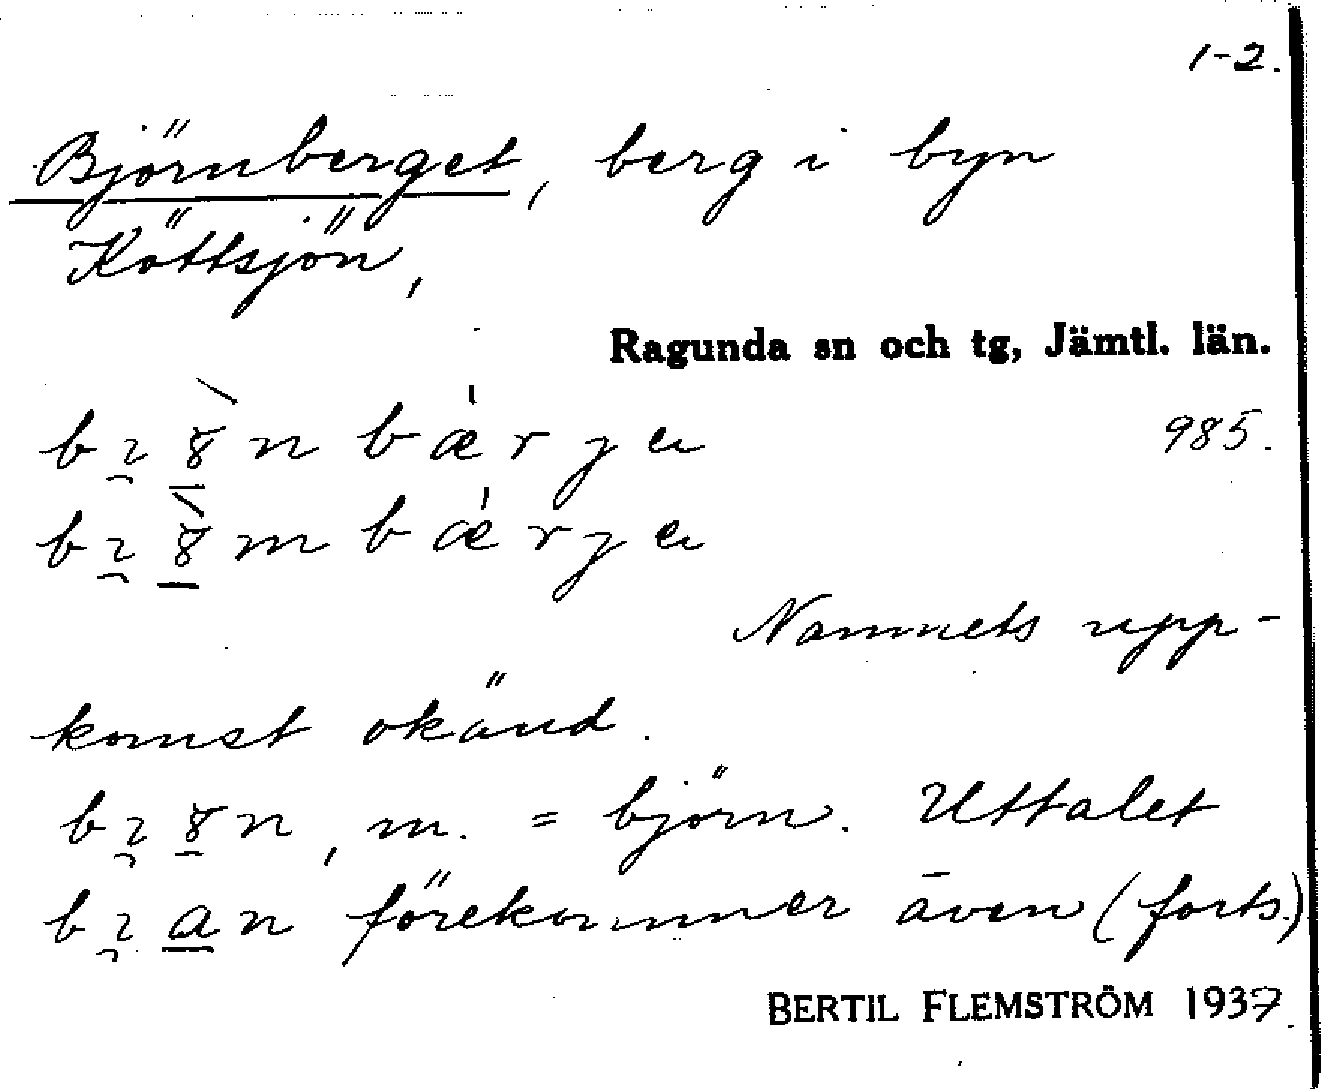 1-2.
Björnberget, berg i byn
Köttsjön,
Ragunda sn och tg, Jämtl. län.
985.
Namnets upp-
komst okänd.
m. = björn. Uttalet
förekommer även (forts.)
BERTIL FLEMSTRÖM 1937